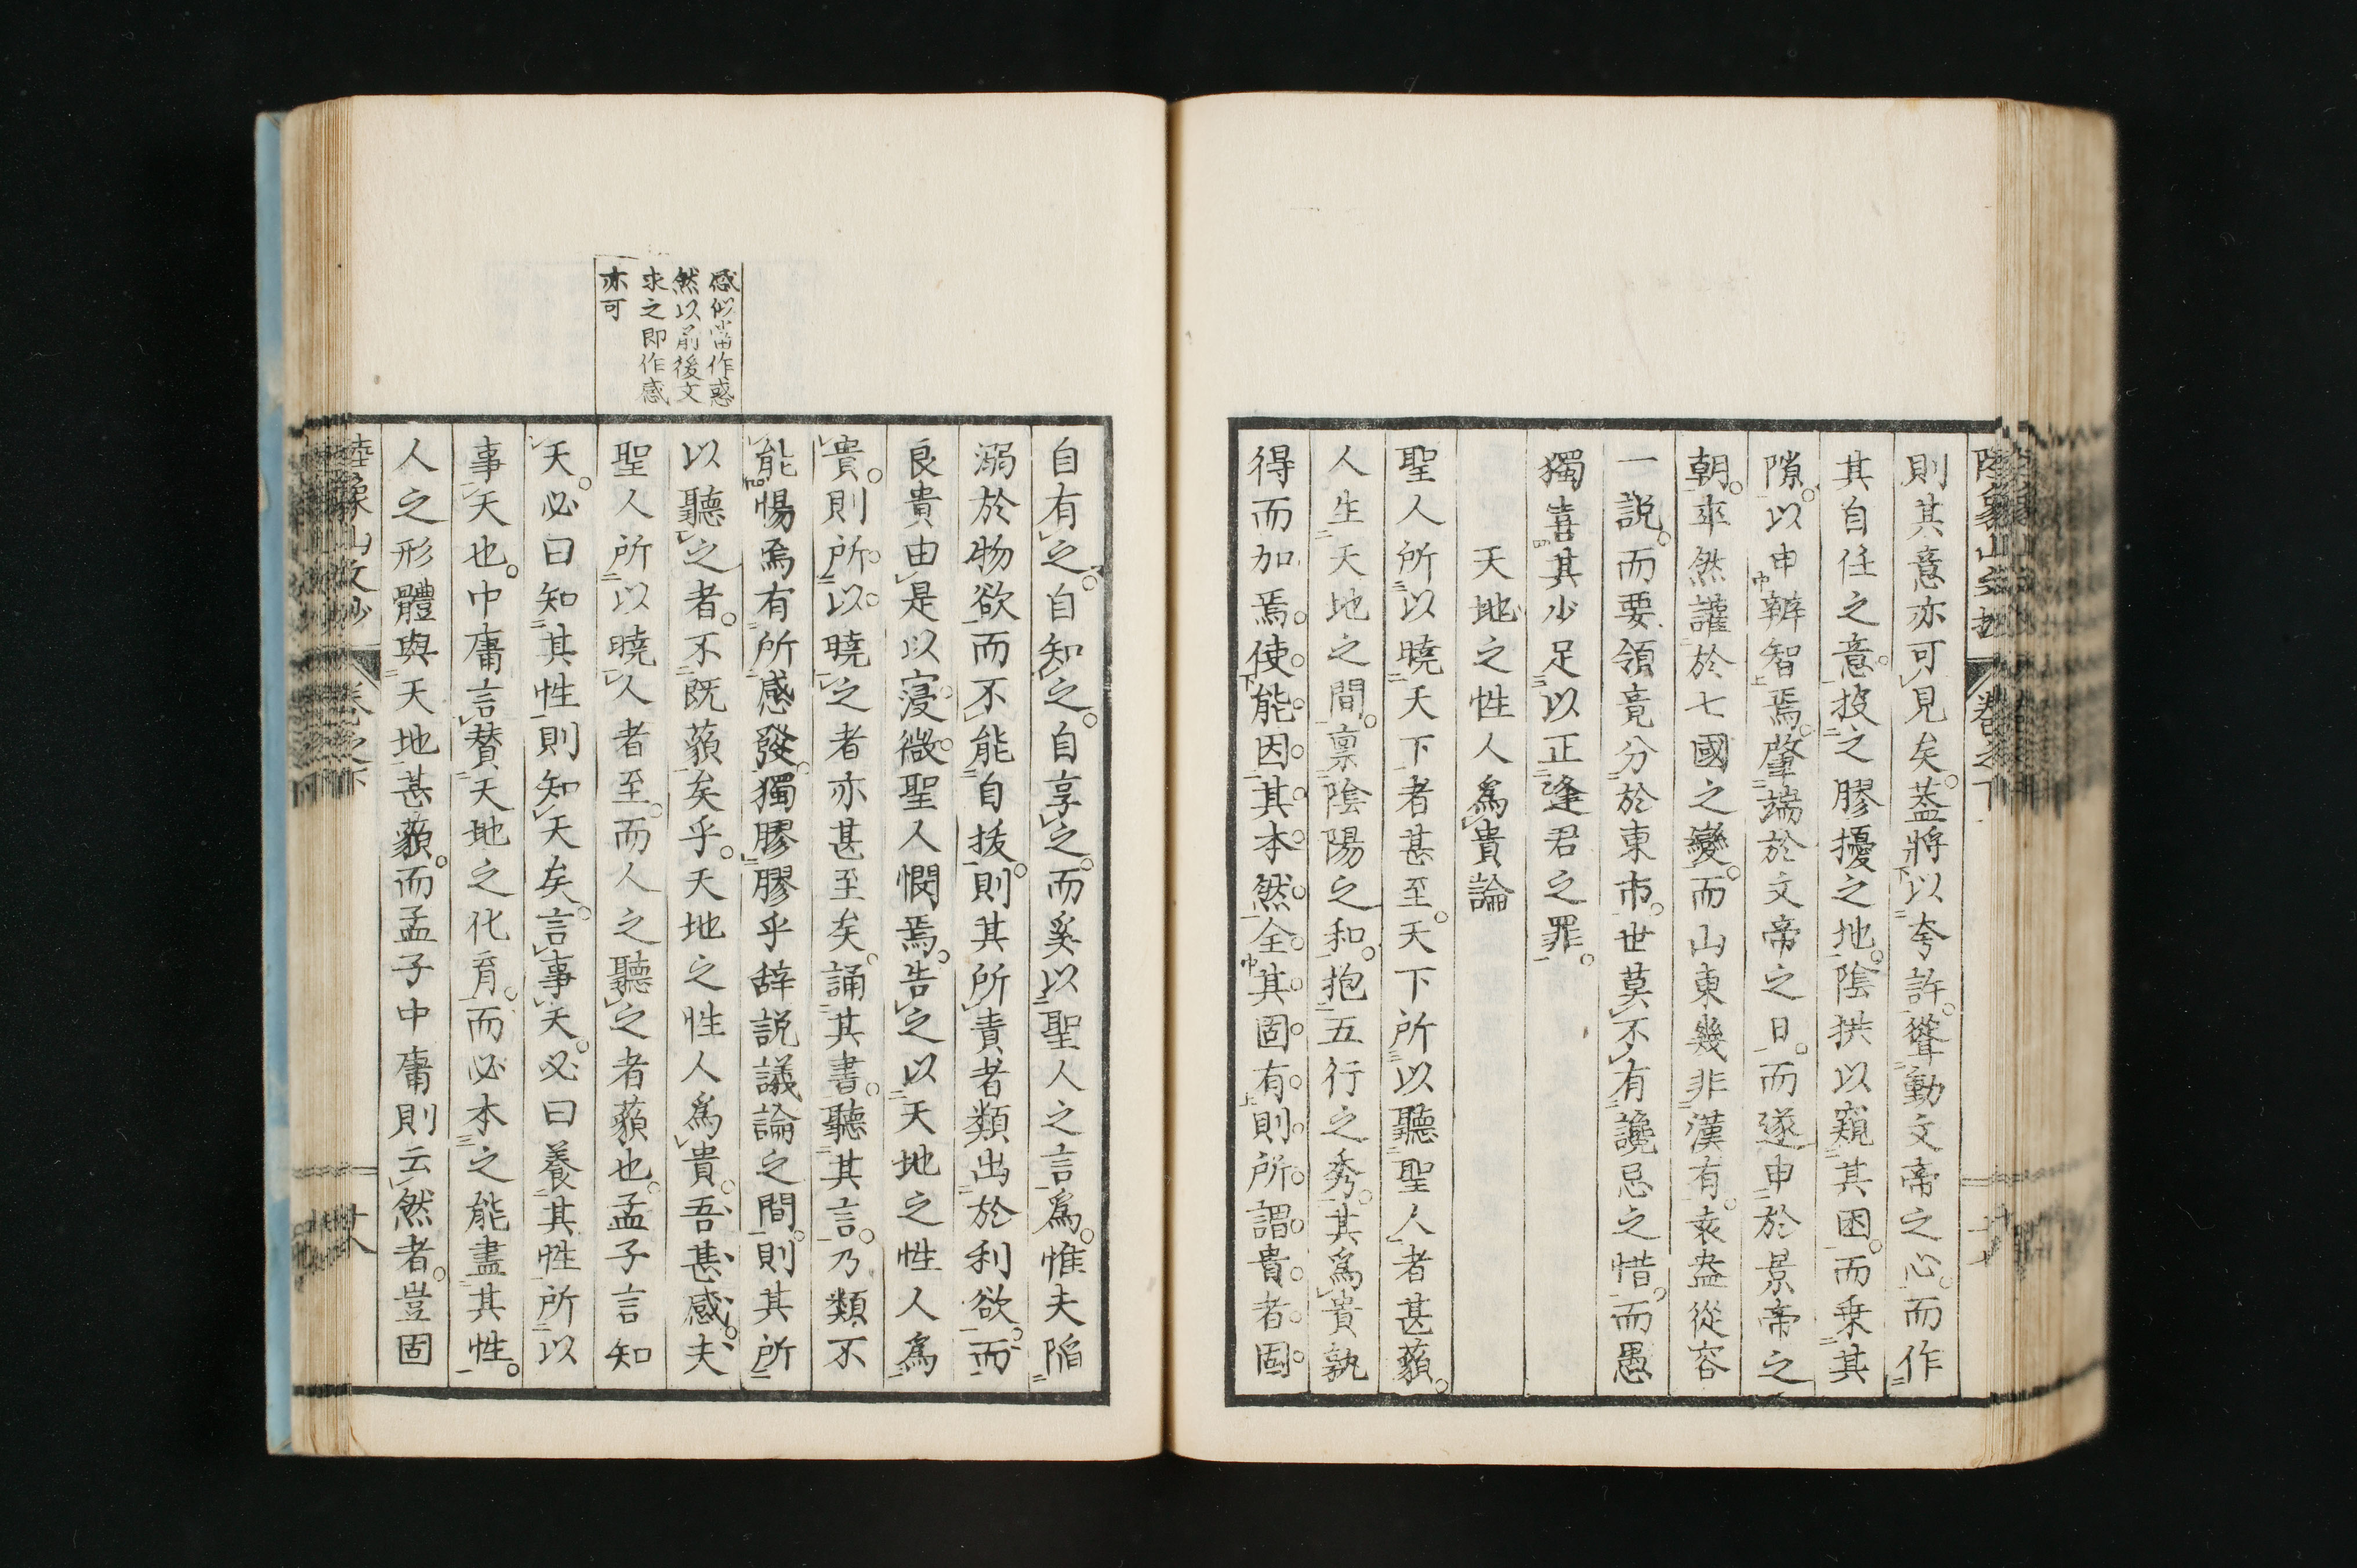 則其意亦可見矣。葢將以夸許。聳動文帝之心。而作
其自任之意。投之膠擾之地。陰拱以窺其困。而乗其
隙。以申辨智焉。肇端於文帝之日。而遂申於景帝之
朝。卒然讙於七國之變。而山東幾非漢有。袁盎從容
一説。而要領竟分於東市。世莫不有讒忌之惜。而愚
獨喜其少足以正逢君之罪。
天地之性人爲貴論
聖人所以曉天下者甚至。天下所以聽聖人者甚藐。
人生天地之間。禀陰陽之和。抱五行之秀。其爲貴孰
得而加焉。使能因其本然。全其固有。則所謂貴者。固
自有之。自知之。自享之。而奚以聖人之言爲。惟夫陷
溺於物欲而不能自拔。則其所責者類出於利欲。而
良貴由是以寖微。聖人憫焉。告之以天地之性人爲
貴。則所以曉之者亦甚至矣。誦其書。聽其言。乃類不
能惕焉有所感發。獨膠膠乎辞説議論之間。則其所
以聽之者。不既藐矣乎。天地之性人爲貴。吾甚感。夫
聖人所以曉人者至。而人之聽之者藐也。孟子言知
天。必曰知其性則知天矣。言事天。必曰養其性所以
事天也。中庸言賛天地之化育。而必本之能盡其性。
人之形體與天地甚藐。而孟子中庸則云然者。豈固
感似當作惑
然以前後文
求之即作感
亦可